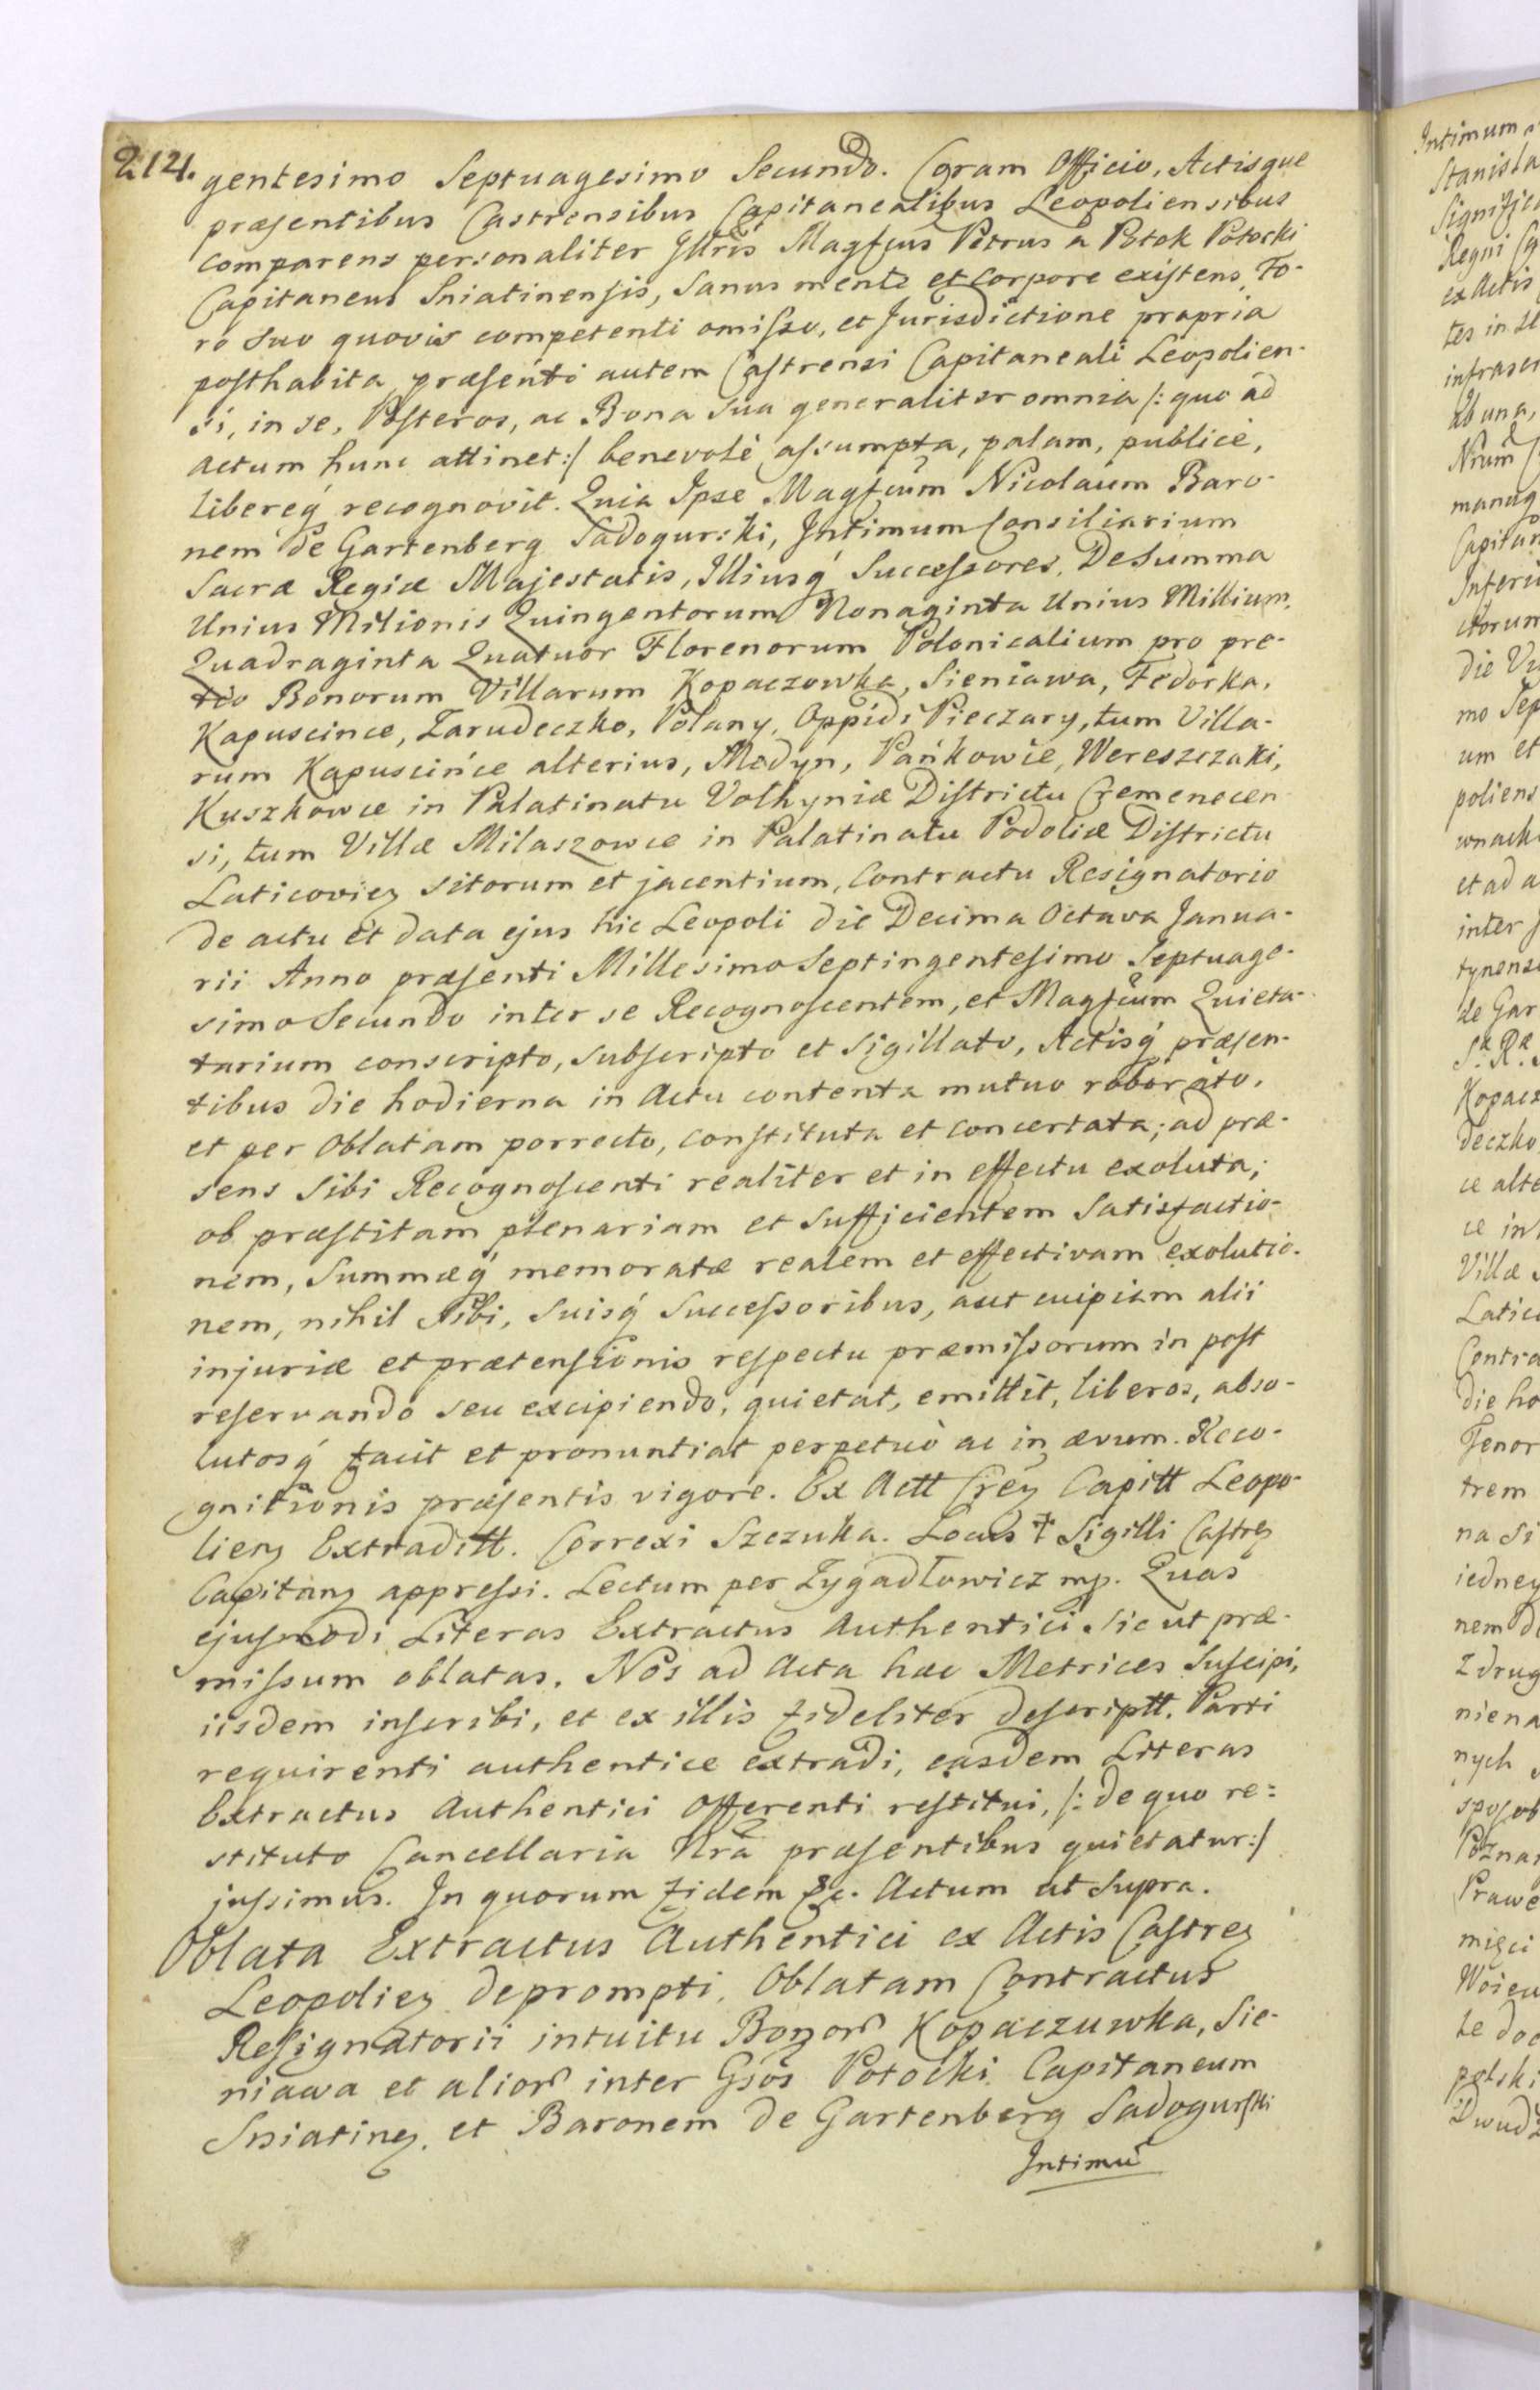 214. gentesimo Septuagesimo Secundo. Coram Officio, Actisque
præsentibus Castrensibus Capitanealibus Leopoliensibus
comparens personaliter Jllris Magfcus Petrus a Potok Potocki
Capitaneus Sniatinensis, Sanus mente et corpore existens, Fo-
ro suo quovis competenti omisso, et Jurisdictione propria
posthabita, præsenti autem Castrensi Capitaneali Leopolien-
si, in se, Posteros, ac Bona sua generaliter omnia /: quo ad
actum hunc attinet :/ benevolè assumpta, palam, publicè,
libereq́ recognovit. Quia Ipse Magfcum Nicolaum Baro-
nem de Gartenberg Sadogurski, Intimum Consiliarium
Sacræ Regiæ Majestatis, Illiusq́ Successores, De Summa
Unius Milionis Quingentorum Nonaginta Unius Millium,
Quadraginta Quatuor Florenorum Polonicalium pro pre-
tio Bonorum Villarum Kopaczowka, Sieniawa, Fedorka,
Kapuscince, Zarudeczko, Polany, Oppidi Pieczary, tum Villa-
rum Kapuscińce alterius, Medyn, Pańkowie, Wereszczaki,
Kuszkowce in Palatinatu Volhyniæ Districtu Cremenecen
si, tum Villæ Milaszowce in Palatinatu Podoliæ Districtu
Laticoviez sitorum et jacentium, Contractu Resignatorio
de actu et data ejus hic Leopoli die Decima Octava Janua-
rii Anno præsenti Millesimo Septingentesimo Septuage-
simo Secundo inter se Recognoscentem, et Magfcum Quieta-
tarium conscripto, subscripto et sigillato, Actisq́ præsen-
tibus die hodierna in Actu contenta mutuo roborato,
et per Oblatam porrecto, constituta et concertata; ad præ-
sens sibi Recognoscenti realiter et in effectu exoluta;
ob præstitam plenariam et sufficientem satisfactio-
nem, Summæq́ memoratæ realem et effectivam exolutio-
nem, nihil sibi, suisq́ Successoribus, aut cuipiam alii
injuriæ et prætensionis respectu præmissorum in post
reservando seu excipiendo, quietat, emittit, liberos, abso-
lutosq́ facit et pronuntiat perpetuò ac in ævum. Reco-
gnitionis præsentis vigore. Ex Actt Crez Capitt Leopo-
lienz Extraditt. Correxi Szczuka. Locus † Sigilli Castrez
Capitanz appressi. Lectum per Zygadłowicz mp. Quas
ejusmodi Literas Extractus Authentici sic ut præ-
missum oblatas, Nos ad Acta hæc Metrices suscipi,
iisdem inscribi, et ex illis fideliter descriptt. Parti
requirenti authentice extradi, easdem Literas
Extractus Authentici Offerenti restitui, /: de quo re=
stituto Cancellaria Nra præsentibus quietatur :/
jussimus. In quorum fidem &c. Actum ut supra.
Oblata Extractus Authentici ex Actis Castrez
Leopoliez deprompti, Oblatam Contractus
Resignatorii intuitu Bonor Kopaczuwka, Sie-
niawa et alior inter Gsos Potocki Capitaneum
Sniatinez, et Baronem de Gartenberg Sadogurski
Intimu
Intimum
Stanisla
Signific
Regni
ex Actis
tes in
infrascr
ab una,
Nrum
manuq
Capitan
Inferi
ctorum
die
mo Sep
um et
poliens
wnach
et ad a
inter
tynens
de Gar
Kopacz
deczko
ce alte
ce in
Villæ
Latic
Contra
die ho
Tenor
trem
na Si
iedney
nem
z drug
niena
nych
sposob
Poznan
Prawe
mięci
Woiew
te
polski
Dwudz